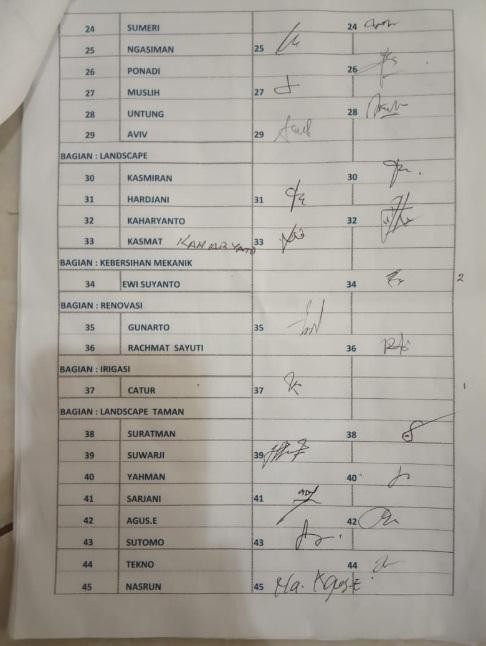 24 SUMERI 24
25 NGASIMAN 25
26 PONADI 26
27 MUSLIH 27
28 UNTUNG 28
29 AVIV 29
BAGIAN : LANDSCAPE
30 KASMIRAN 30
31 HARDJANI 31
32 KAHARYANTO 32
33 KASMAT 33
BAGIAN : KEBERSIHAN MEKANIK
34 EWI SUYANTO 34 2
BAGIAN : RENOVASI
35 GUNARTO 35
36 RACHMAT SAYUTI 36
BAGIAN : IRIGASI
37 CATUR 37 1
BAGIAN : LANDSCAPE TAMAN
38 SURATMAN 38
39 SUWARJI 39
40 YAHMAN 40
41 SARJANI 41
42 AGUS.E 42
43 SUTOMO 43
44 TEKNO 44
45 NASRUN 45